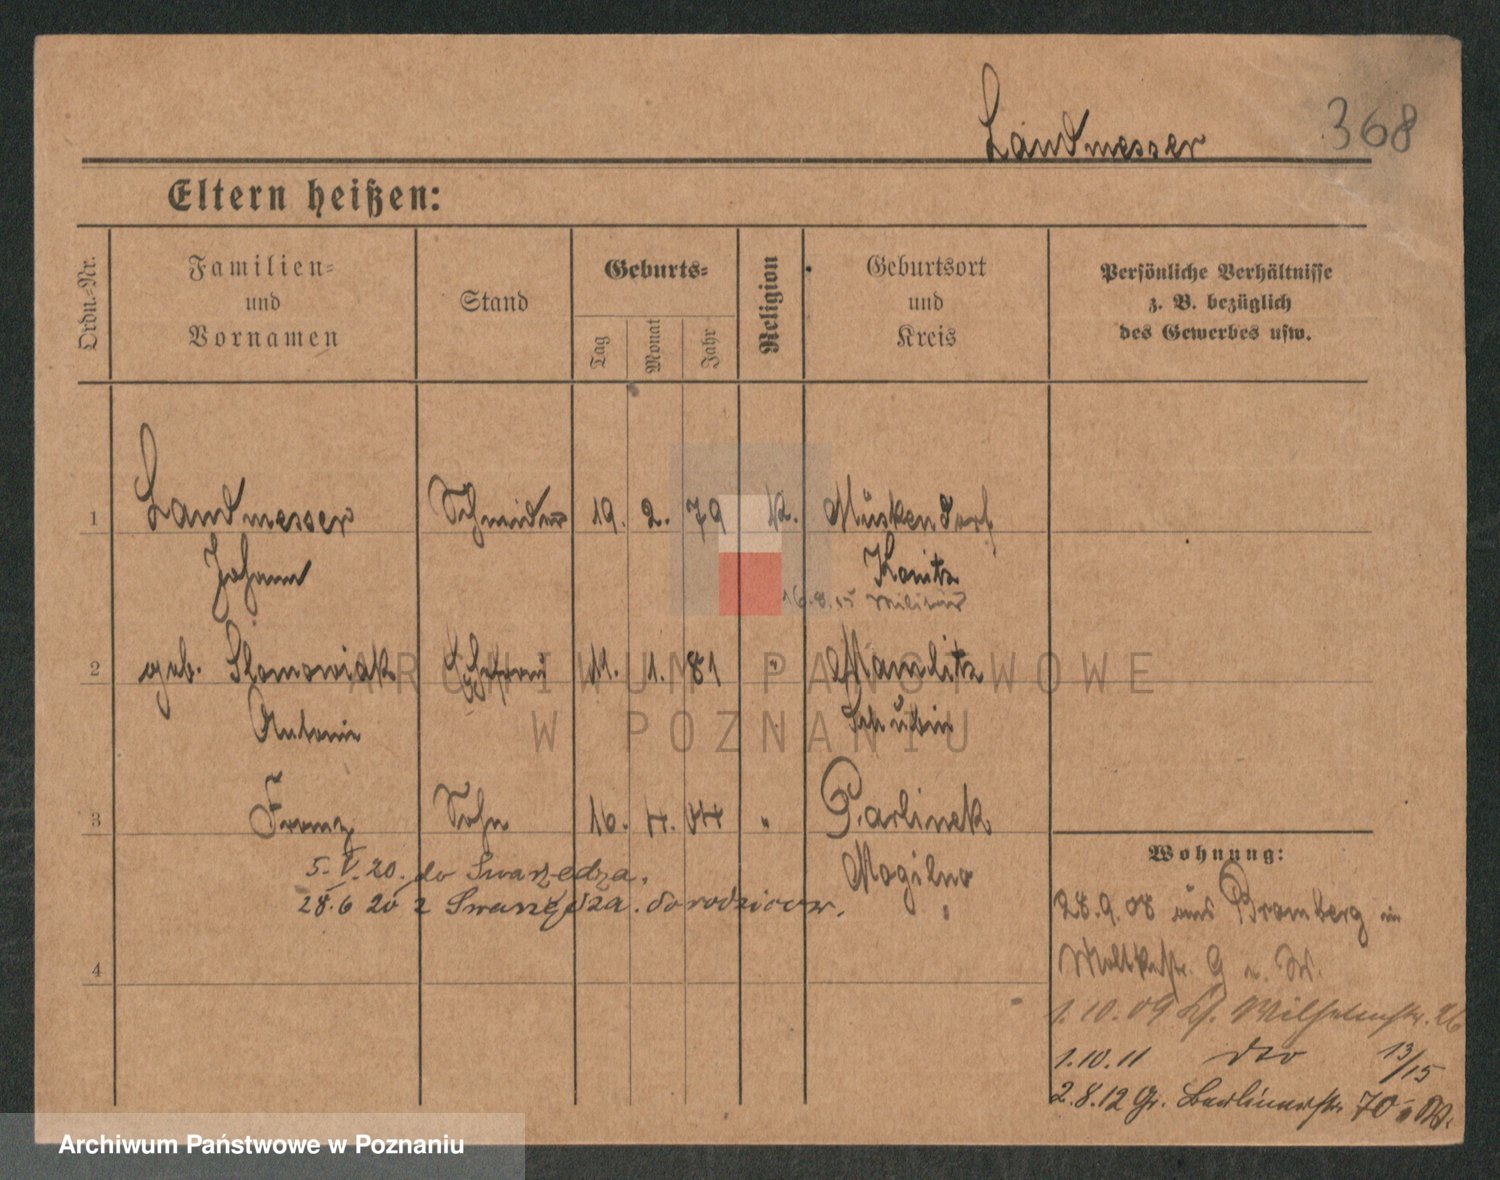 Landmesser 368
Eltern heißen:
Ordn.-Nr.
Familien-
und
Vornamen
Stand
Geburts-
Tag
Monat
Jahr
Religion
Geburtsort
und
Kreis
Persönliche Verhältnisse
z. B. bezüglich
des Gewerbes usw.
1 Landmesser Schneider 19. 2. 79 K. Müskendorf
Johann Konitz
16.8.15 Militär
2 geb. Slomowiak Ehefrau 11. 1. 81 " Mamlitz
Antonie Schubin
3 Franz Sohn 16. 4. 04 " Parlinek
Mogilno
5. V. 20. do Swarzędza.
28.6 20 z Swarzędza. do rodziców.
4
Wohnung:
28.9.08 aus Bromberg in
Moltkestr. 9 W.
1.10.09 Wilhelmstr. 26
1.10.11 dto 13/15
2.8.12 Gr. Berlinerstr. 70
ARCHIWUM PAŃSTWOWE
W POZNANIU
Archiwum Państwowe w Poznaniu